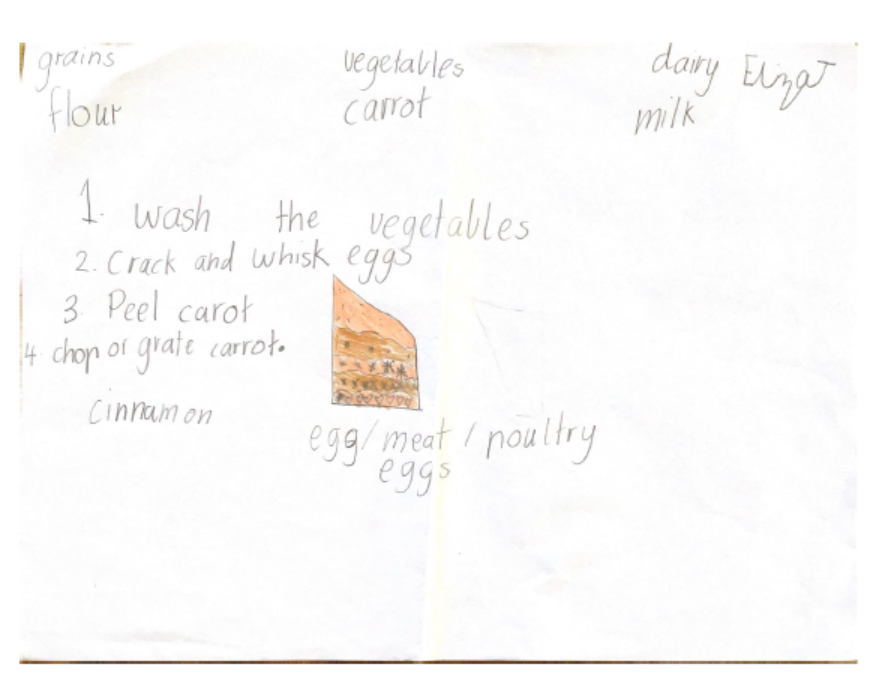 grains
flour
vegetables
carrot
dairy
milk
ElizaT
1. wash the vegetables
2. Crack and whisk eggs
3. Peel carot
4. chop or grate carrot.
cinnamon
egg/meat/poultry
eggs